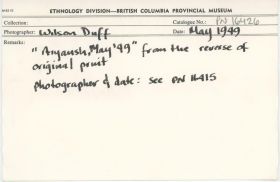 ETHNOLOGY DIVISION—BRITISH COLUMBIA PROVINCIAL MUSEUM
Collection: Catalogue No.: PN 16426
Photographer: Wilson Duff Date: May 1949
Remarks:
"Aiyansh, May '49" from the reverse of
original print
photographer & date: see PN 11415